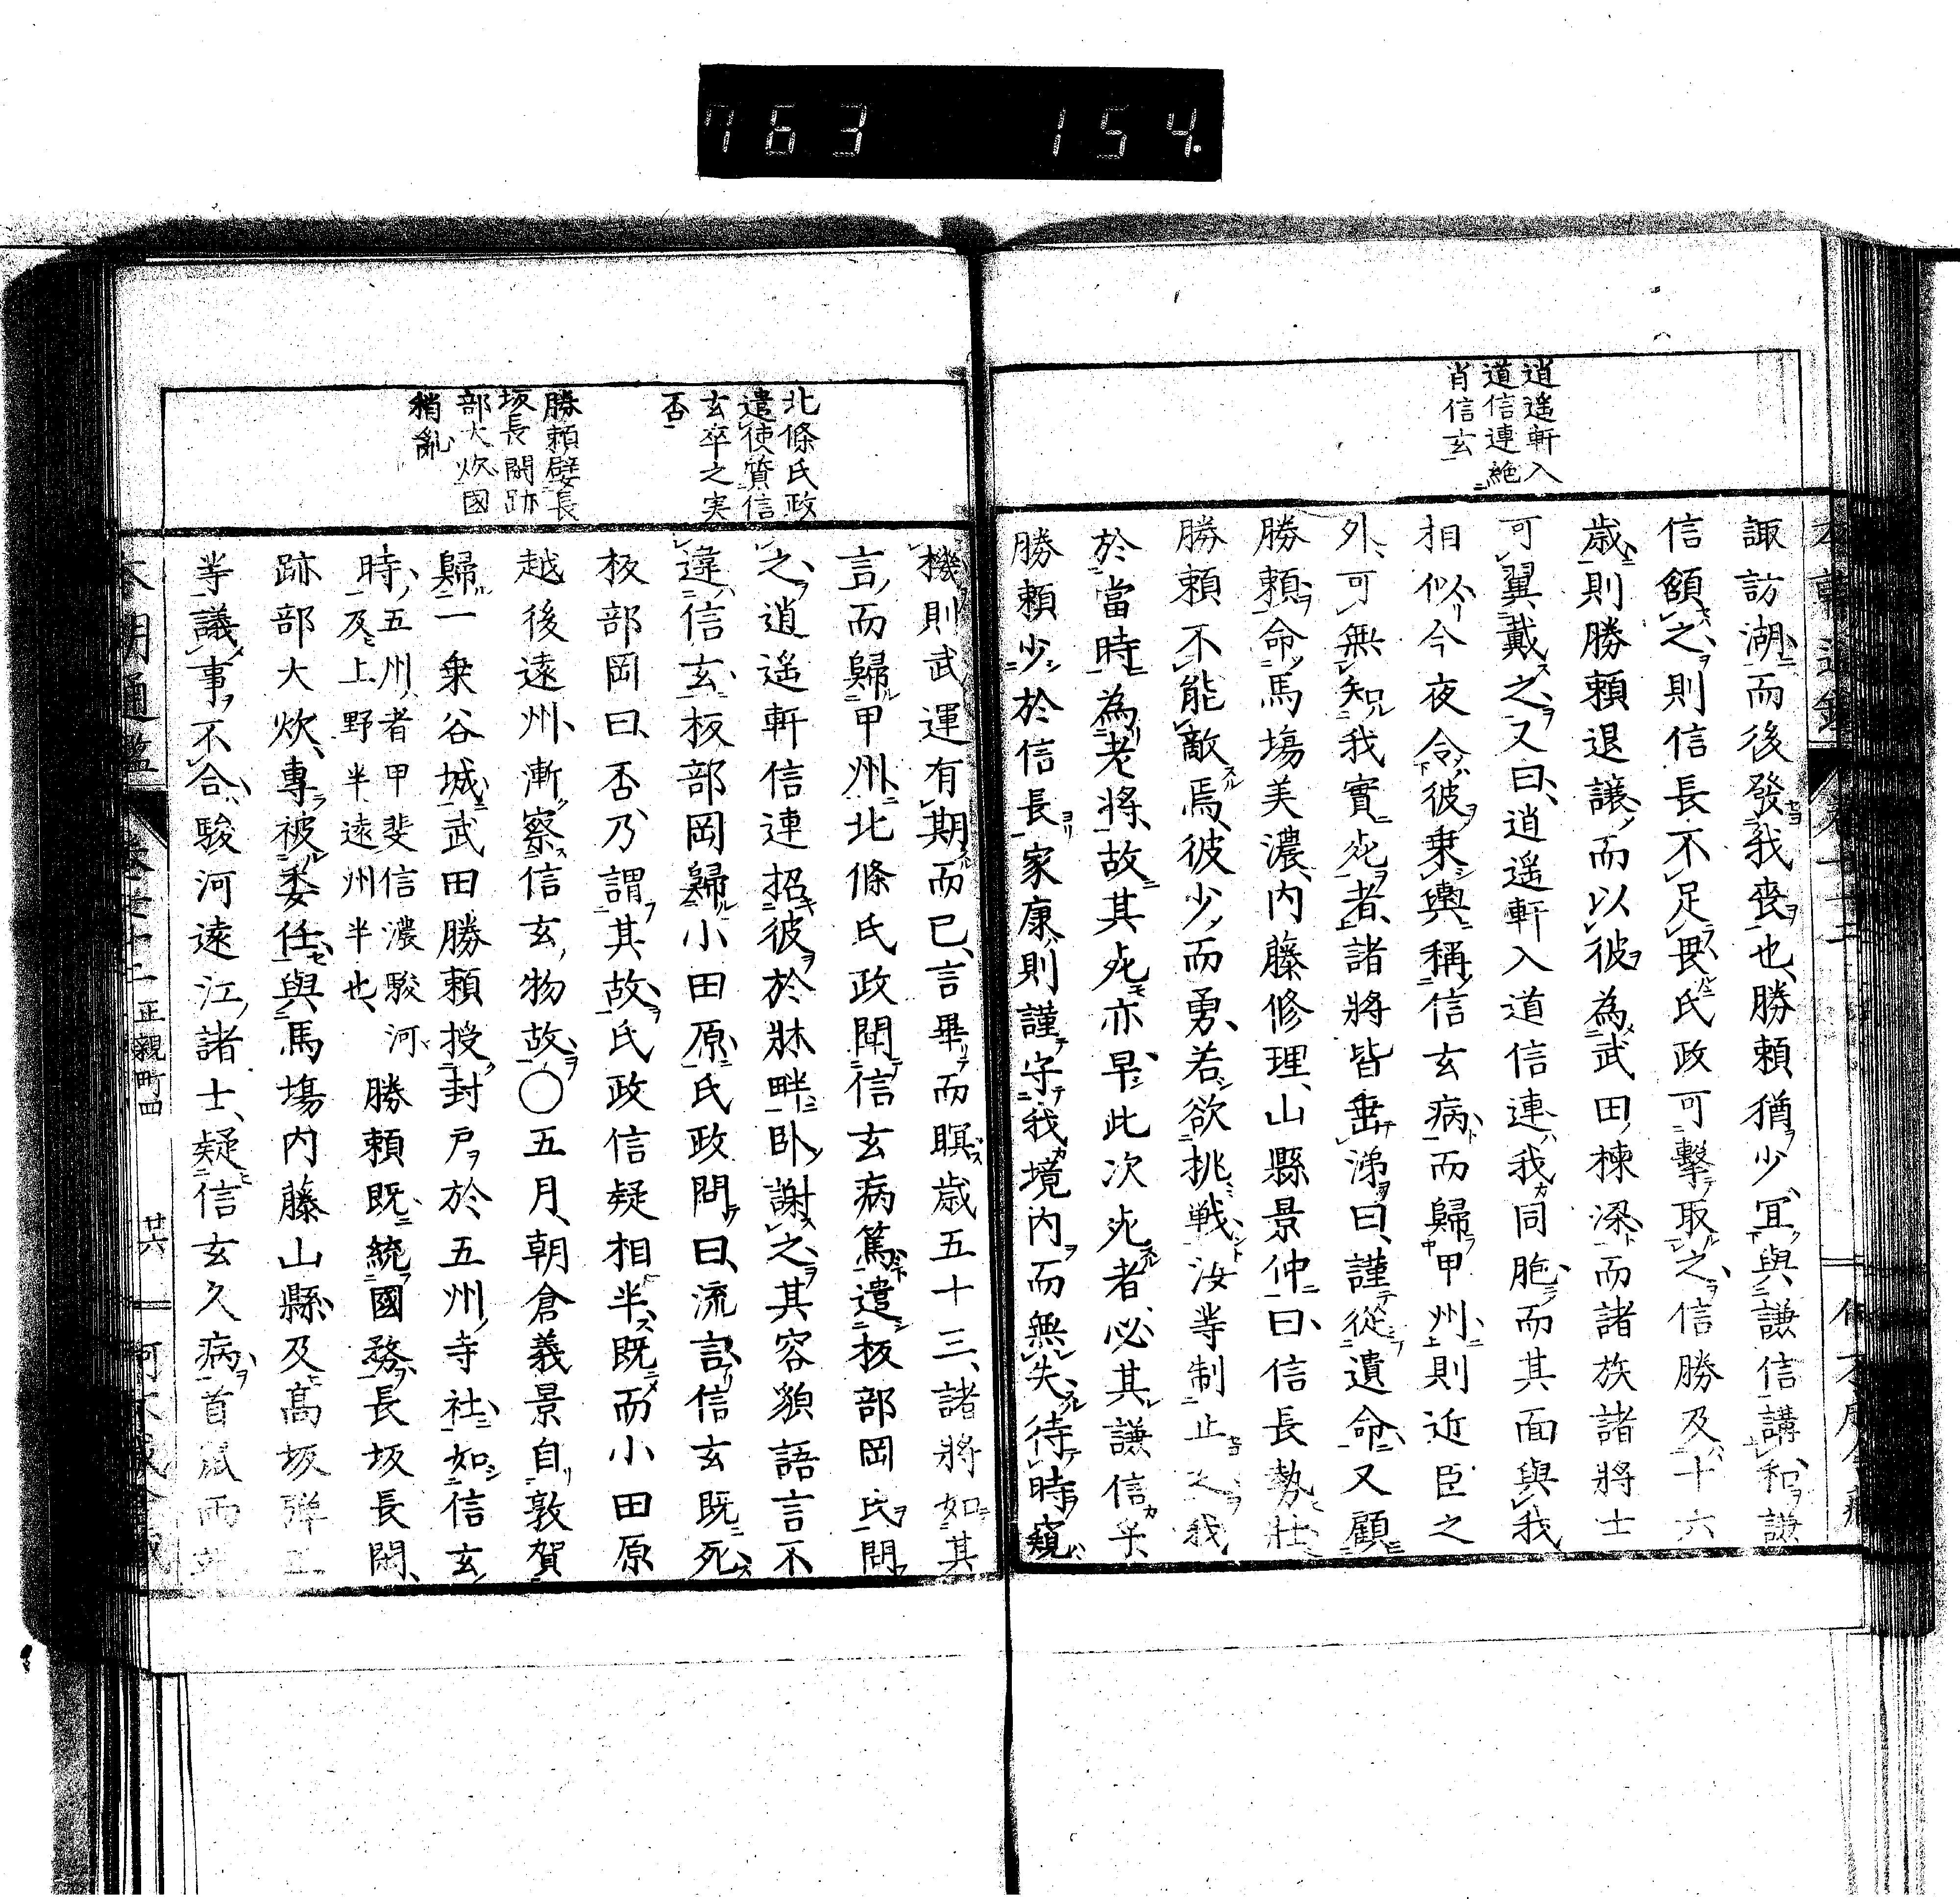 763 154.
逍遥軒入
道信連絶
肖信玄
諏訪湖而後發我喪也、勝頼猶少、冝與謙信講和、謙
信額之、則信長不足畏、氏政可擊取之、信勝及十六
歳則勝頼退讓、而以彼為武田棟梁、而諸族諸將士
可翼戴之、又曰、逍遥軒入道信連、我同胞、而其面與我
相似、今夜令彼乗輿、稱信玄病、而歸甲州、則近臣之
外、可無知我實死者、諸將皆垂涕曰、謹從遺命、又顧
勝頼、命馬塲美濃、内藤修理、山縣景仲曰、信長勢壯
勝頼不能敵焉、彼少而勇、若欲挑戦、汝等制止之、我
於當時為老將、故其死亦早、此次死者、必其謙信乎、
勝頼少於信長家康、則謹守我境内、而無失、待時窺
北條氏政
遣使質信
玄卒之実
否
勝頼嬖長
坂長閑跡
部大炊國
稍亂
機則武運有期而已、言畢而瞑、歳五十三、諸將如其
言、而歸甲州、北條氏政聞信玄病篤、遣板部岡氏問
之、逍遥軒信連招彼於牀畔、卧謝之、其容貌語言不
違信玄、板部岡歸小田原、氏政問曰、流言信玄既死
板部岡曰、否、乃謂其故、氏政信疑相半、既而小田原
越後遠州、漸察信玄物故、○五月、朝倉義景自敦賀
歸一乗谷城、武田勝頼授封戸於五州寺社、如信玄
時、五州者甲斐信濃駿河
及上野半遠州半也、勝頼既統國務、長坂長閑、
跡部大炊、專被委任、與馬塲内藤山縣及高坂弾正
等議事不合、駿河遠江諸士、疑信玄久病、首鼠而
本朝通鑑
正親町四
廿六